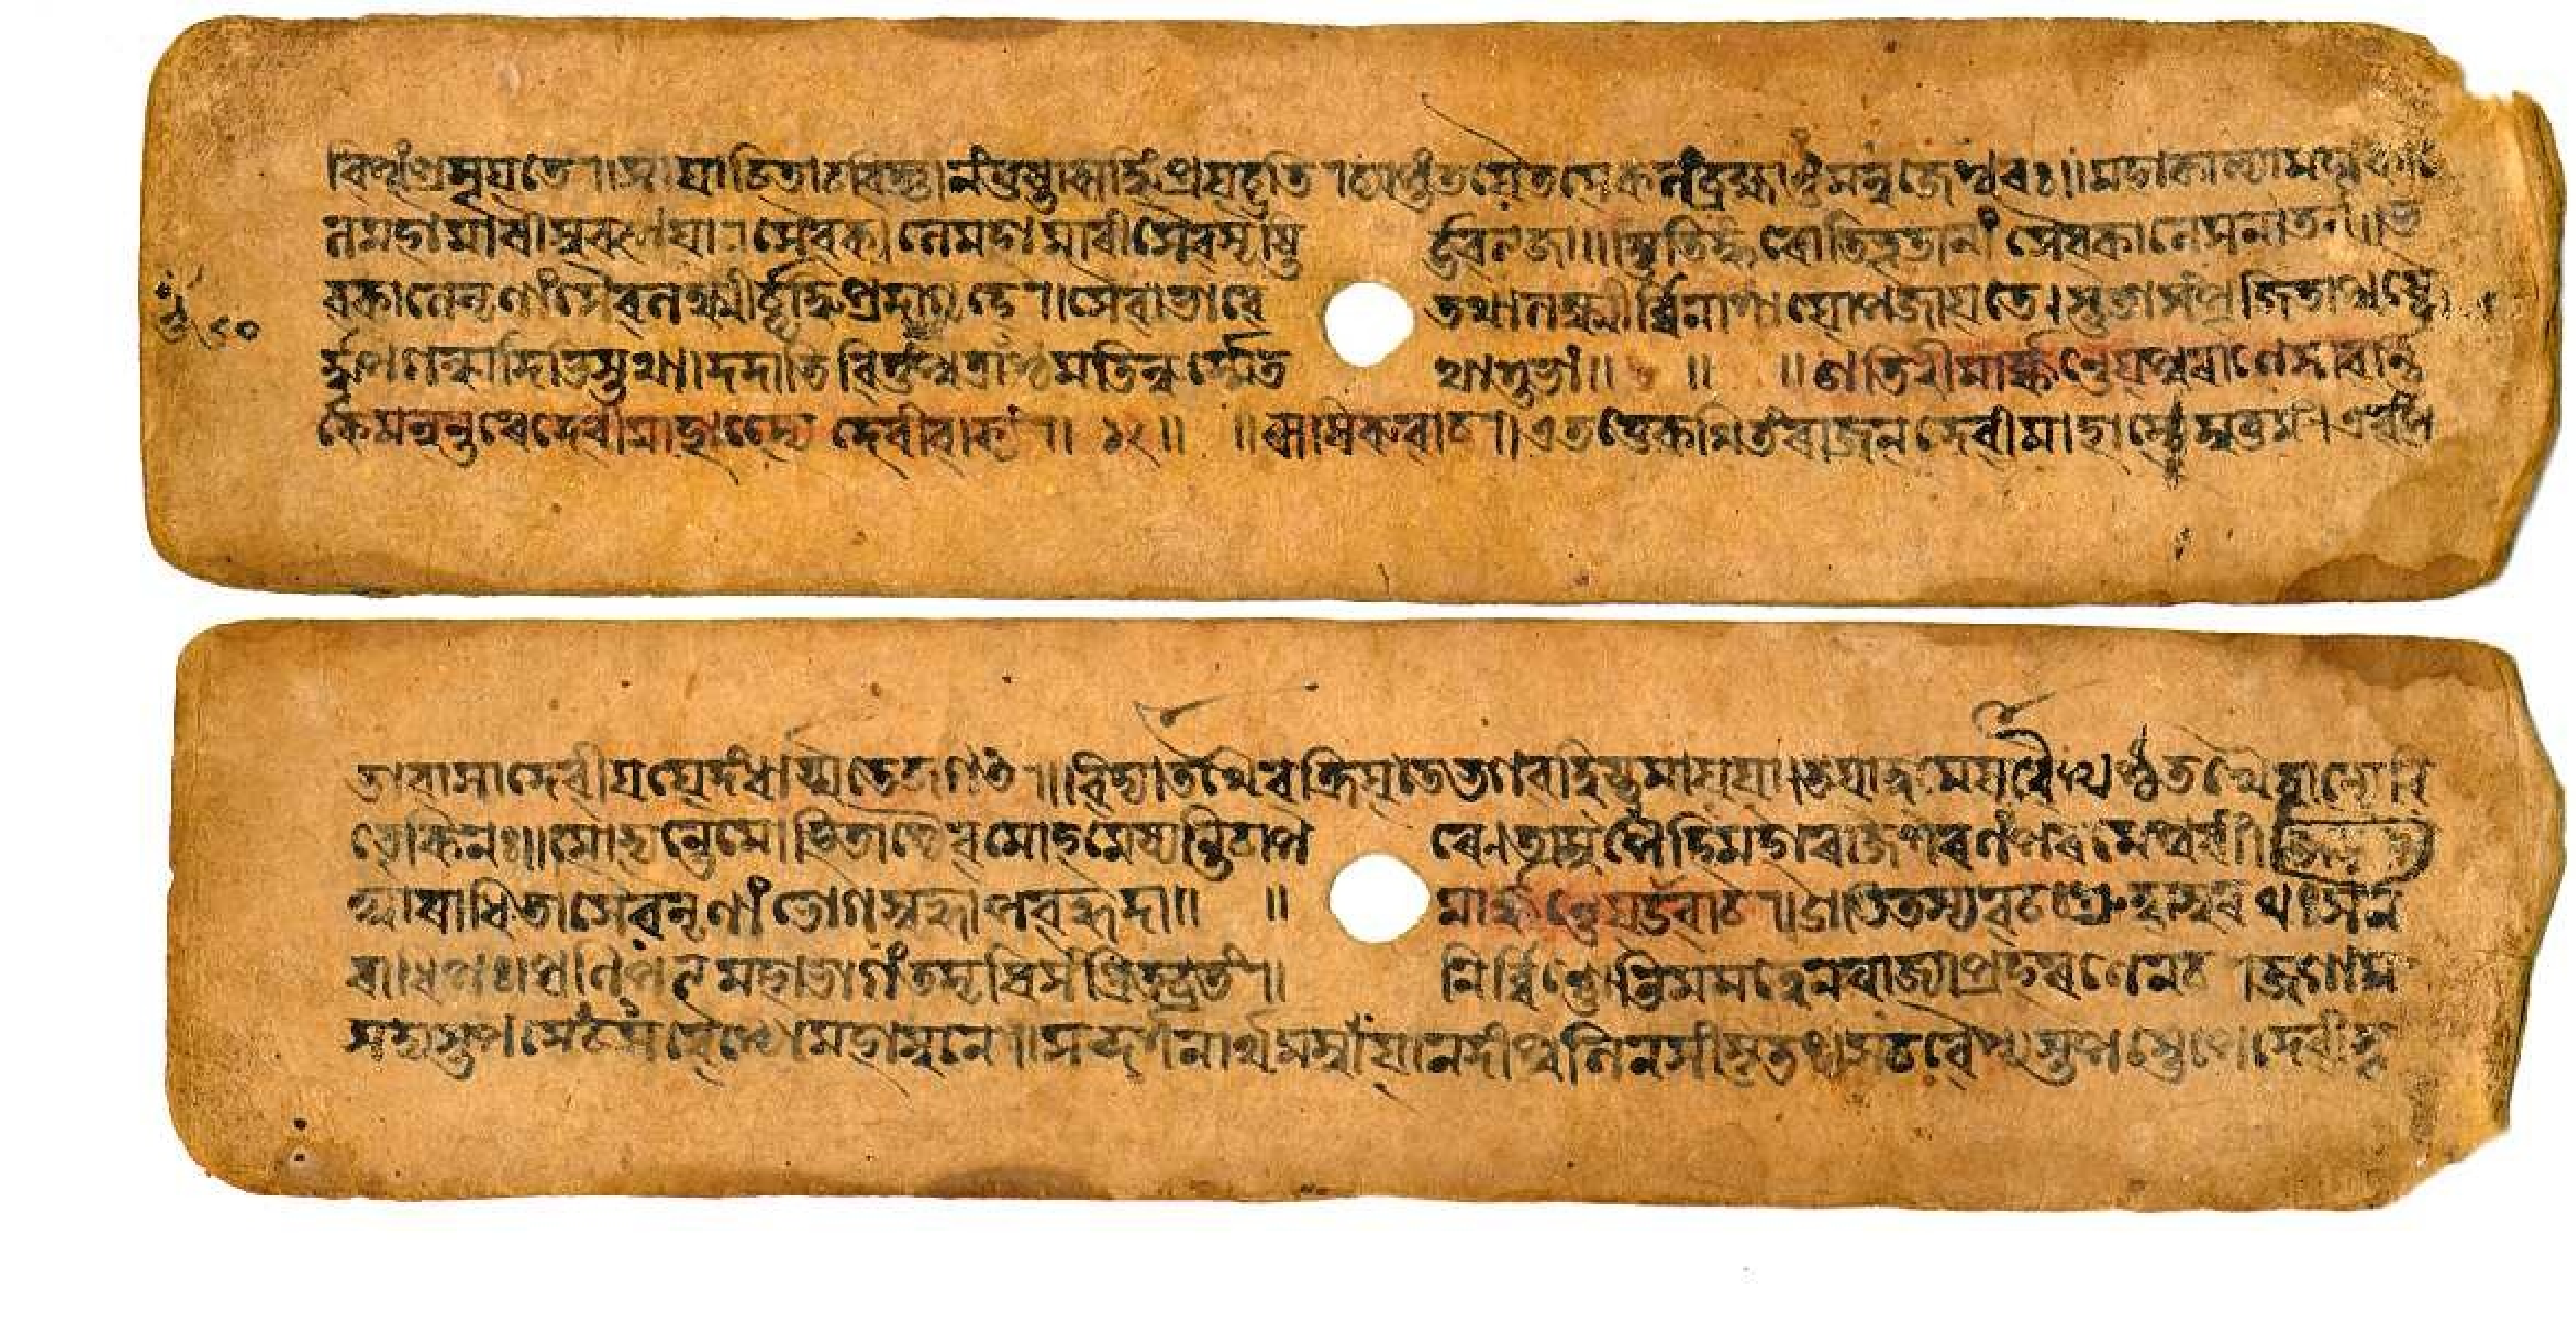 বিশ্বং প্রসূয়তে। সা যাচিতা চ বিজ্ঞানং তুষ্টা ঋদ্ধিং প্রযচ্ছতি। ব্যাপ্তং তয়ৈতৎ সকলং ব্রহ্মাণ্ডং মনুজেশ্বৰঃ॥ মহাকাল্যা মহাকা
লে মহামাৰীস্বৰূপয়া। সৈব কালে মহামাৰী সৈব সৃষ্টির্ভবত্যজা॥ স্থিতিং কৰোতি ভূতানাং সৈব কালে সনাতনী॥ ভ
বকালে নৃণাং সৈব লক্ষ্মীর্বৃদ্ধিপ্রদা গৃহে। সৈবাভাবে তথালক্ষ্মীর্ব্বিনাশায়োপজায়তে। স্তুতা সংপূজিতা পুষ্পৈ
র্দ্ধূপগন্ধাদিভিস্তথা। দদাতি বিত্তং পুত্রাংশ্চ মতিং ধর্ম্মে তথা শুভাং॥ ॥ ॥ ইতি শ্রীমার্ক্কণ্ডেয়পুৰাণে সাবর্ণ্ণি
কে মন্বন্তৰে দেবীমাহাত্ম্যে দেবীবাক্যং॥ ১২॥ ॥ ঋষিৰুবাচ॥ এতত্তে কথিতং ৰাজন্ দেবীমাহাত্ম্যমুত্তমং। এবংপ্র
৯০
ভাবা সা দেবী যয়েদং ধার্য্যতে জগৎ॥ বিদ্যা তথৈব ক্রিয়তে ভগবদ্বিষ্ণুমায়য়া। তয়া ত্বমেষ বৈশ্যশ্চ তথৈবান্যে বি
বেকিনঃ॥ মোহ্যন্তে মোহিতাশ্চৈব মোহমেষ্যন্তি চাপৰে। তামুপৈহি মহাৰাজ শৰণং পৰমেশ্বৰীং
আৰাধিতা সৈব নৃণাং ভোগস্বর্গাপবর্গদা॥ ॥ মার্ক্কণ্ডেয় উবাচ॥ ইতি তস্য বচঃ শ্রুত্বা সুৰথঃ স ন
ৰাধিপঃ প্রণিপত্য মহাভাগং তমৃষিং সংশিতব্রতং॥ নির্ব্বিণ্ণোতিমমত্বেন ৰাজ্যাপহৰণেন চ। জগাম
সদ্যস্তপসে স চ বৈশ্যো মহামুনে॥ সন্দর্শনার্থমম্বায়া নদীপুলিনসংস্থিতঃ স চ বৈশ্যস্তপস্তেপে দেবীসূ